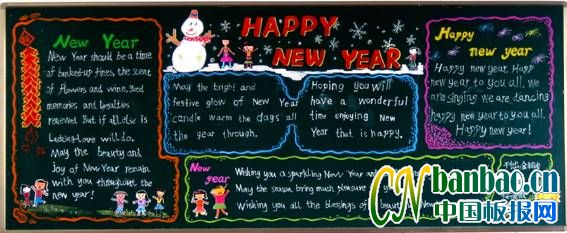 New Year
New Year should be a time
of banked-up fires, the scent
of flowers and wine, good
memories and loyalties
renewed. But if all else is
Lacking-love will do.
May the beauty and
joy of New Year remain
with you throughout the
new year!
HAPPY
NEW YEAR
May the bright and
festive glow of New Year
candle warm the days all
the year through.
Hoping you will
have a wonderful
time enjoying New
Year that is happy.
Happy
new year
Happy new year, Happ
new year to you all. We
are singing we are dancing
happy new year to you all.
Happy new year!
New
year
Wishing you a sparkling New Year and
May the season bring much pleasure
Wishing you all the blessings of a beauti New
CN banbao.cn
中国板报网